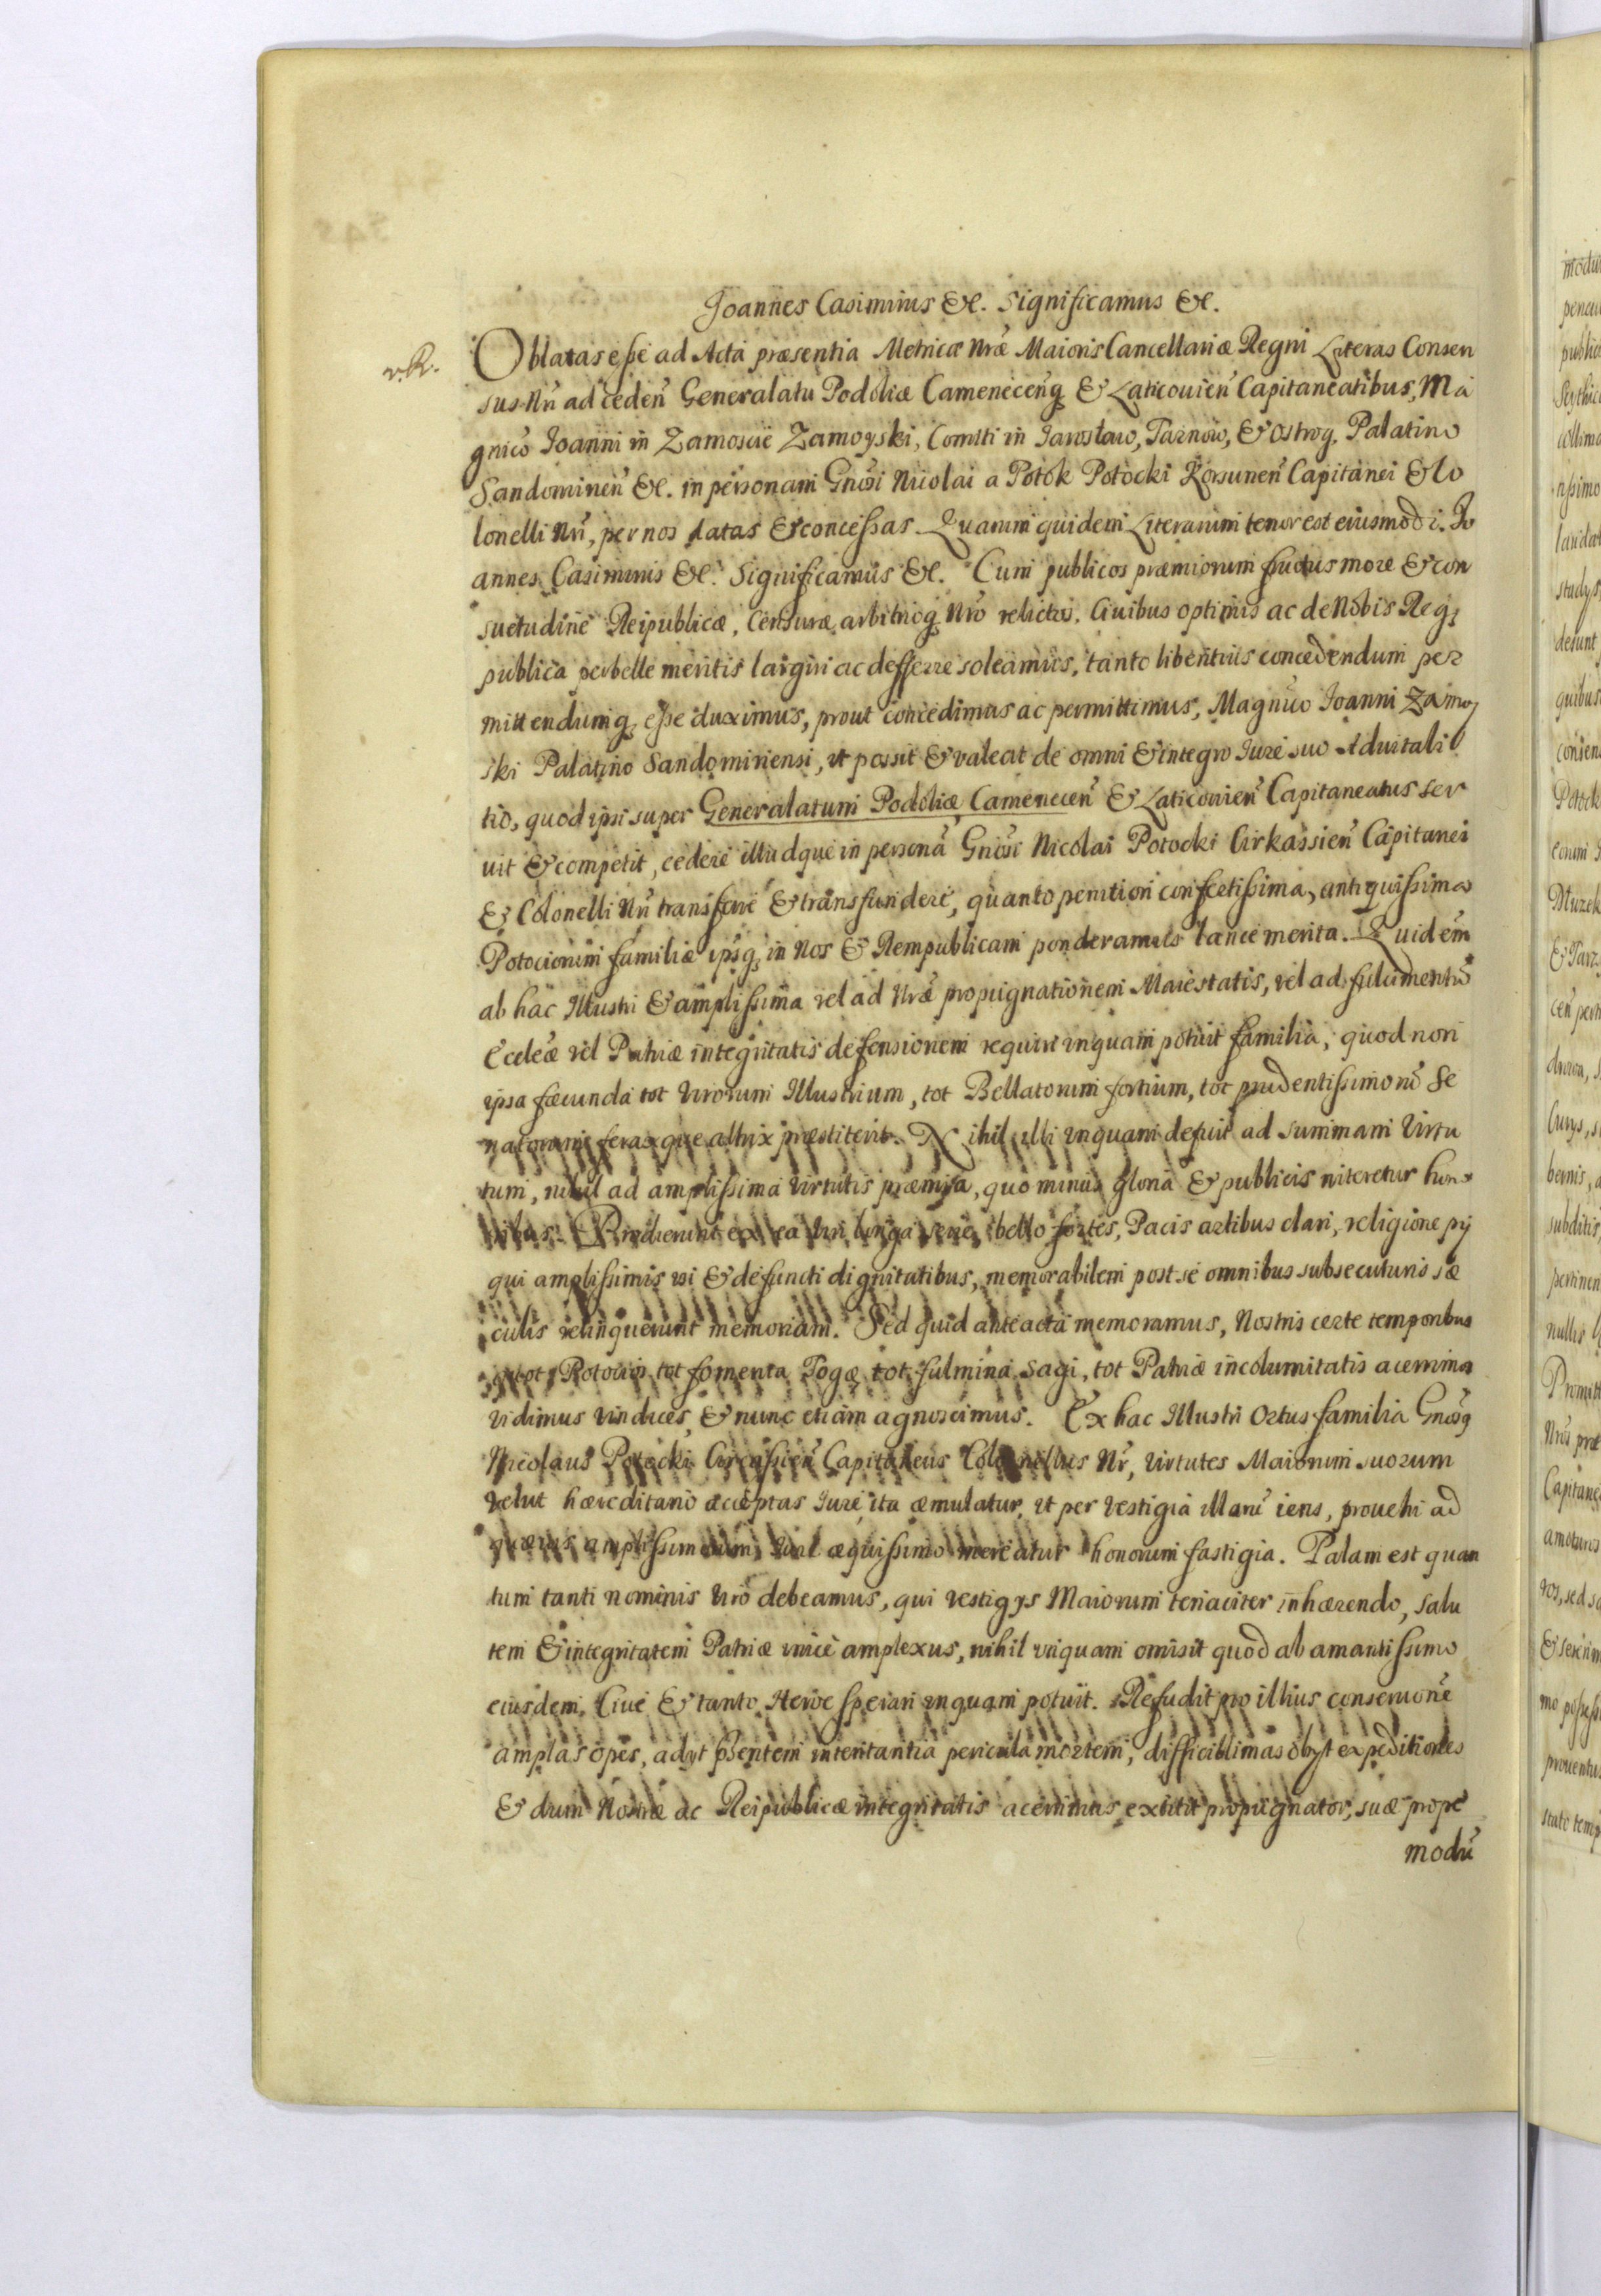 Joannes Casimirus &c. Significamus &c.
r.R.
Oblatas eße ad Acta præsentia Metricæ Nræ Maioris Cancellariæ Regni Literas Consen
sus Nri ad ceden̄ Generalatu Podoliæ Camenecen̄q, & Laticouien̄ Capitaneatibus, Ma
gnico Joanni in Zamoscie Zamoyski, Comiti in Jarosław, Tarnow, & Ostrog, Palatino
Sandominen̄ &c. in personam Gnosi Nicolai a Potok Potocki Korsunen̄ Capitanei & Co
lonelli Nri, per nos datas & conceßas. Quarum quidem Literarum tenor est eiusmodi. Jo
annes Casimirus &c. Significamus &c. Cum publicos præmiorum fructus more & con
suetudine Reipublicæ, Censuræ arbitrioq, Nro relictos. Ciuibus optimis ac de Nobis Req,
publica perbelle meritis largiri ac defferre soleamus, tanto libentius concedendum per
mittendumq, eße duximus, prout concedimus ac permittimus, Magnico Joanni Zamoy
ski Palatino Sandomiriensi, ut possit & valeat de omni & integro Jure suo Aduitali
tio, quod ipsi super Generalatum Podoliæ Camenecen̄ & Laticouien̄ Capitaneatus ser
uit & competit, cedere illudque in personā Gnosi Nicolai Potocki Cirkassien̄ Capitanei
& Colonelli Nri transferre & transfundere, quanto penitiori confertissima, antiquißima
Potociorum familiæ ipsq, in Nos & Rempublicam ponderamus lance merita. Quid em̄
ab hac Illustri & amplißima vel ad Nræ propugnationem Maiestatis, vel ad fulumentū
Eccleæ vel Patriæ integritatis defensionem requiri unquam potuit familia, quod non
ipsa fæcunda tot Virorum Illustrium, tot Bellatorum fortium, tot prudentissimorū Se
natorum feraxque altrix præstiterit. Nihil illi unquam defuit ad summam Virtu
tum, nihil ad amplißima Virtutis præmia, quo minus gloria & publicis niteretur hono
ribus. Prodierunt ex ea Viri longa serie, bello fortes, Pacis artibus clari, religione pij
qui amplißimis usi & defuncti dignitatibus, memorabilem post se omnibus subsecuturis sæ
culis relinquerunt memoriam. Sed quid anteacta memoramus, Nostris certe temporibus
tot Potocios tot fomenta Togæ tot fulmina Sagi, tot Patriæ incolumitatis acerrimos
vidimus vindices, & nunc etiam agnoscimus. Ex hac Illustri Ortus familia Gnosq
Nicolaus Potocki Circaßien̄ Capitaneus Colonellus Nr, Virtutes Maiorum suorum
velut hæreditario acceptas Jure, ita æmulatur, ut per vestigia illarū iens, prouehi ad
quæuis amplißimorum, Jure æquissimo mereatur honorum fastigia. Palam est quan
tum tanti nominis Viro debeamus, qui vestigys Maiorum tenaciter inhærendo, salu
tem & integritatem Patriæ unice amplexus, nihil unquam omisit quod ab amantißimo
eiusdem Ciue & tanto Heroe sperari unquam potuit. Refudit pro illius conseruone
amplas opes, adyt pßentem intentantia pericula mortem, difficillimas obyt expeditiones
& dum Nostræ ac Reipublicæ integritatis acerrimus extitit propugnator, suæ prope
modū